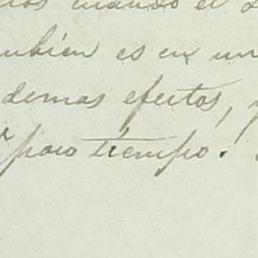 cuando el
ambien es en un
demas efectos,
poco tiempo.